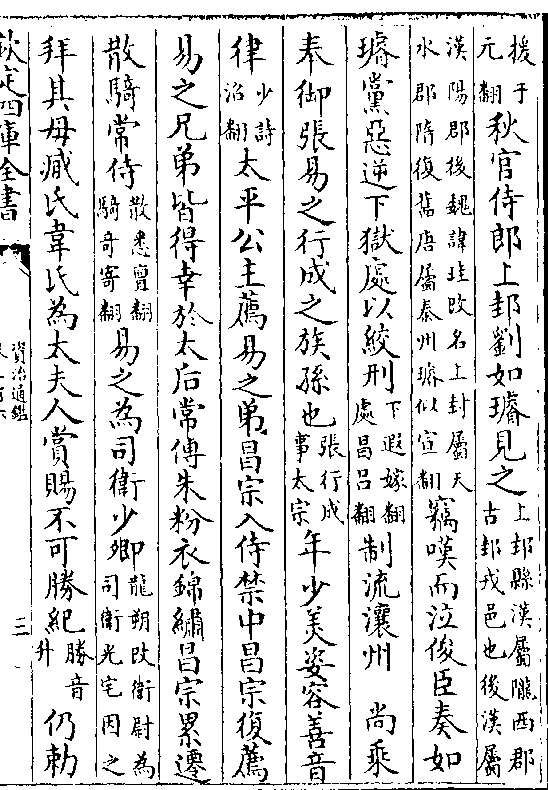 援于元翻秋官侍郎上邽劉如璿見之上邽縣漢屬隴西郡古邽戎邑也後漢屬
漢陽郡後魏諱珪改名上封屬天水郡隋復舊唐屬秦州璿似宣翻竊嘆而泣俊臣奏如
璿黨惡逆下獄處以絞刑下遐嫁翻處昌呂翻制流瀼州 尚乘
奉御張易之行成之族孫也張行成事太宗年少美姿容善音
律少詩沼翻太平公主薦易之弟昌宗入侍禁中昌宗復薦
易之兄弟皆得幸於太后常傅朱粉衣錦繡昌宗累遷
散騎常侍散悉亶翻騎奇寄翻易之為司衛少卿龍朔改衛尉為司衛光宅因之
拜其母臧氏韋氏為太夫人賞賜不可勝紀勝音升仍勅
欽定四庫全書
資治通鑑
三